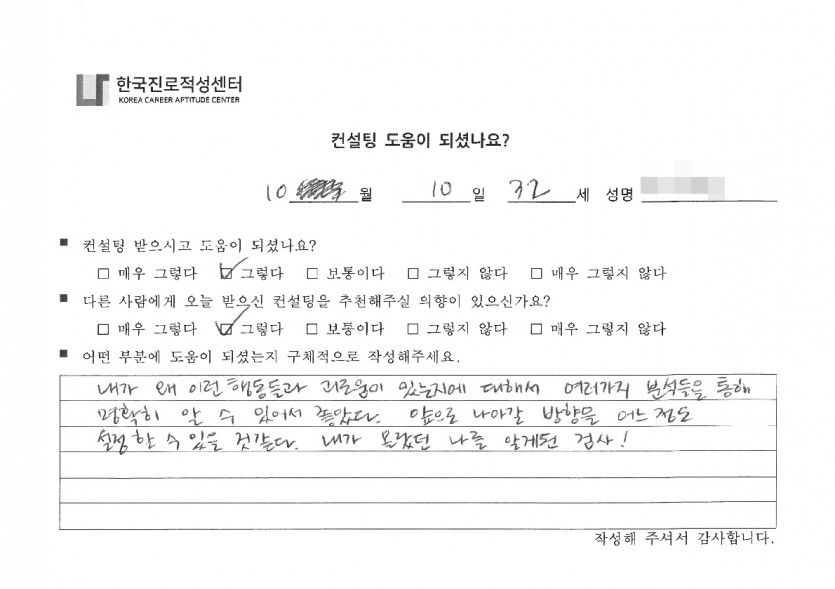 한국진로적성센터
KOREA CAREER APTITUDE CENTER
컨설팅 도움이 되셨나요?
10 월 10 일 32 세 성명
■ 컨설팅 받으시고 도움이 되셨나요?
□ 매우 그렇다 ☑ 그렇다 □ 보통이다 □ 그렇지 않다 □ 매우 그렇지 않다
■ 다른 사람에게 오늘 받으신 컨설팅을 추천해주실 의향이 있으신가요?
□ 매우 그렇다 ☑ 그렇다 □ 보통이다 □ 그렇지 않다 □ 매우 그렇지 않다
■ 어떤 부분에 도움이 되셨는지 구체적으로 작성해주세요.
내가 왜 이런 행동들과 괴로움이 있는지에 대해서 여러가지 분석들을 통해
명확히 알 수 있어서 좋았다. 앞으로 나아갈 방향을 어느정도
설정할 수 있을 것같다. 내가 몰랐던 나를 알게된 검사!
작성해 주셔서 감사합니다.